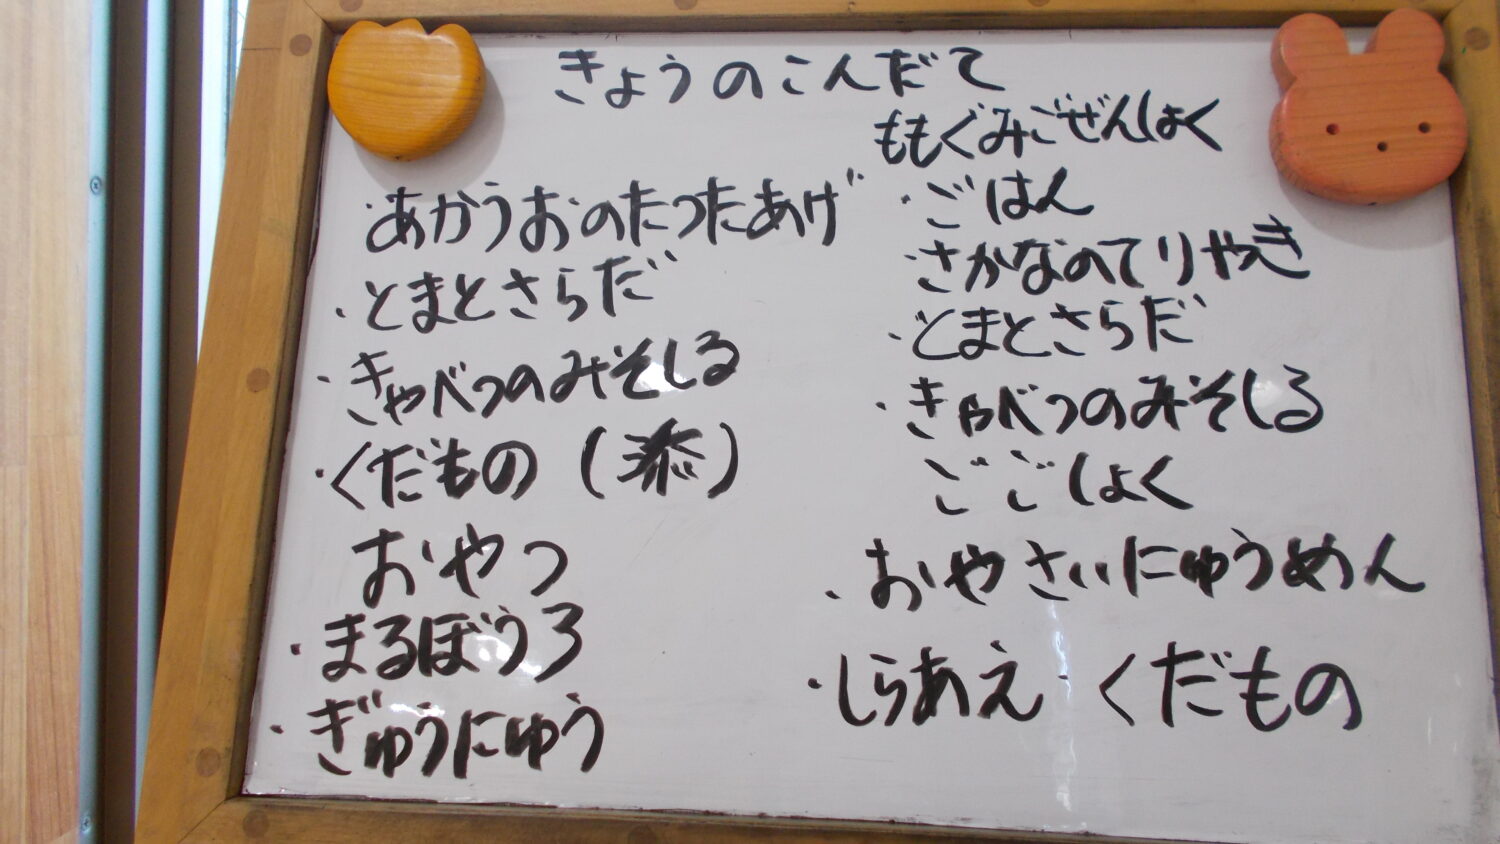 きょうのこんだて
・あかうおのたつたあげ
・とまとさらだ
・きゃべつのみそしる
・くだもの（　）
おやつ
・まるぼうろ
・ぎゅうにゅう
ももぐみごぜんしょく
・ごはん
・さかなのてりやき
・とまとさらだ
・きゃべつのみそしる
ごごしょく
・おやさいにゅうめん
・しらあえ くだもの